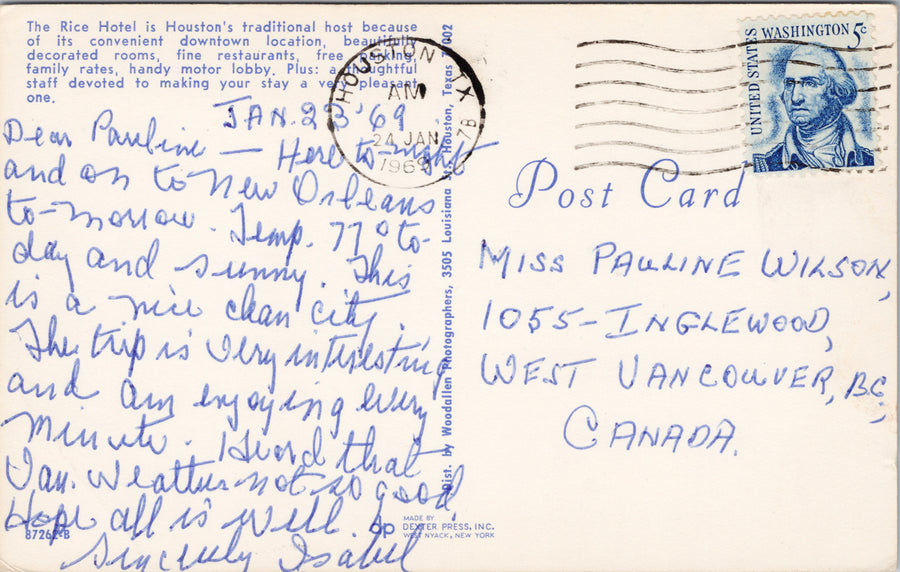 The Rice Hotel is Houston's traditional host because
of its convenient downtown location, beautifully
decorated rooms, fine restaurants, free parking,
family rates, handy motor lobby. Plus: a thoughtful
staff devoted to making your stay a very pleasant
one.
JAN. 23 '69
Dear Pauline — Here to-night
and on to New Orleans
to-morrow. Temp. 77° to-
day and sunny. This
is a nice clean city.
The trip is very interesting
and am enjoying every
minute. Heard that
Van. weather not so good.
Hope all is well.
Sincerely Isabel
87262-B
Dist. by Woodallen Photographers, 3505 Louisiana St., Houston, Texas 002
DP
MADE BY
DEXTER PRESS, INC.
WEST NYACK, NEW YORK
HOUSTON TX
AM
24 JAN
1969
7B
UNITED STATES
WASHINGTON 5c
Post Card
MISS PAULINE WILSON,
1055-INGLEWOOD,
WEST VANCOUVER, BC,
CANADA.